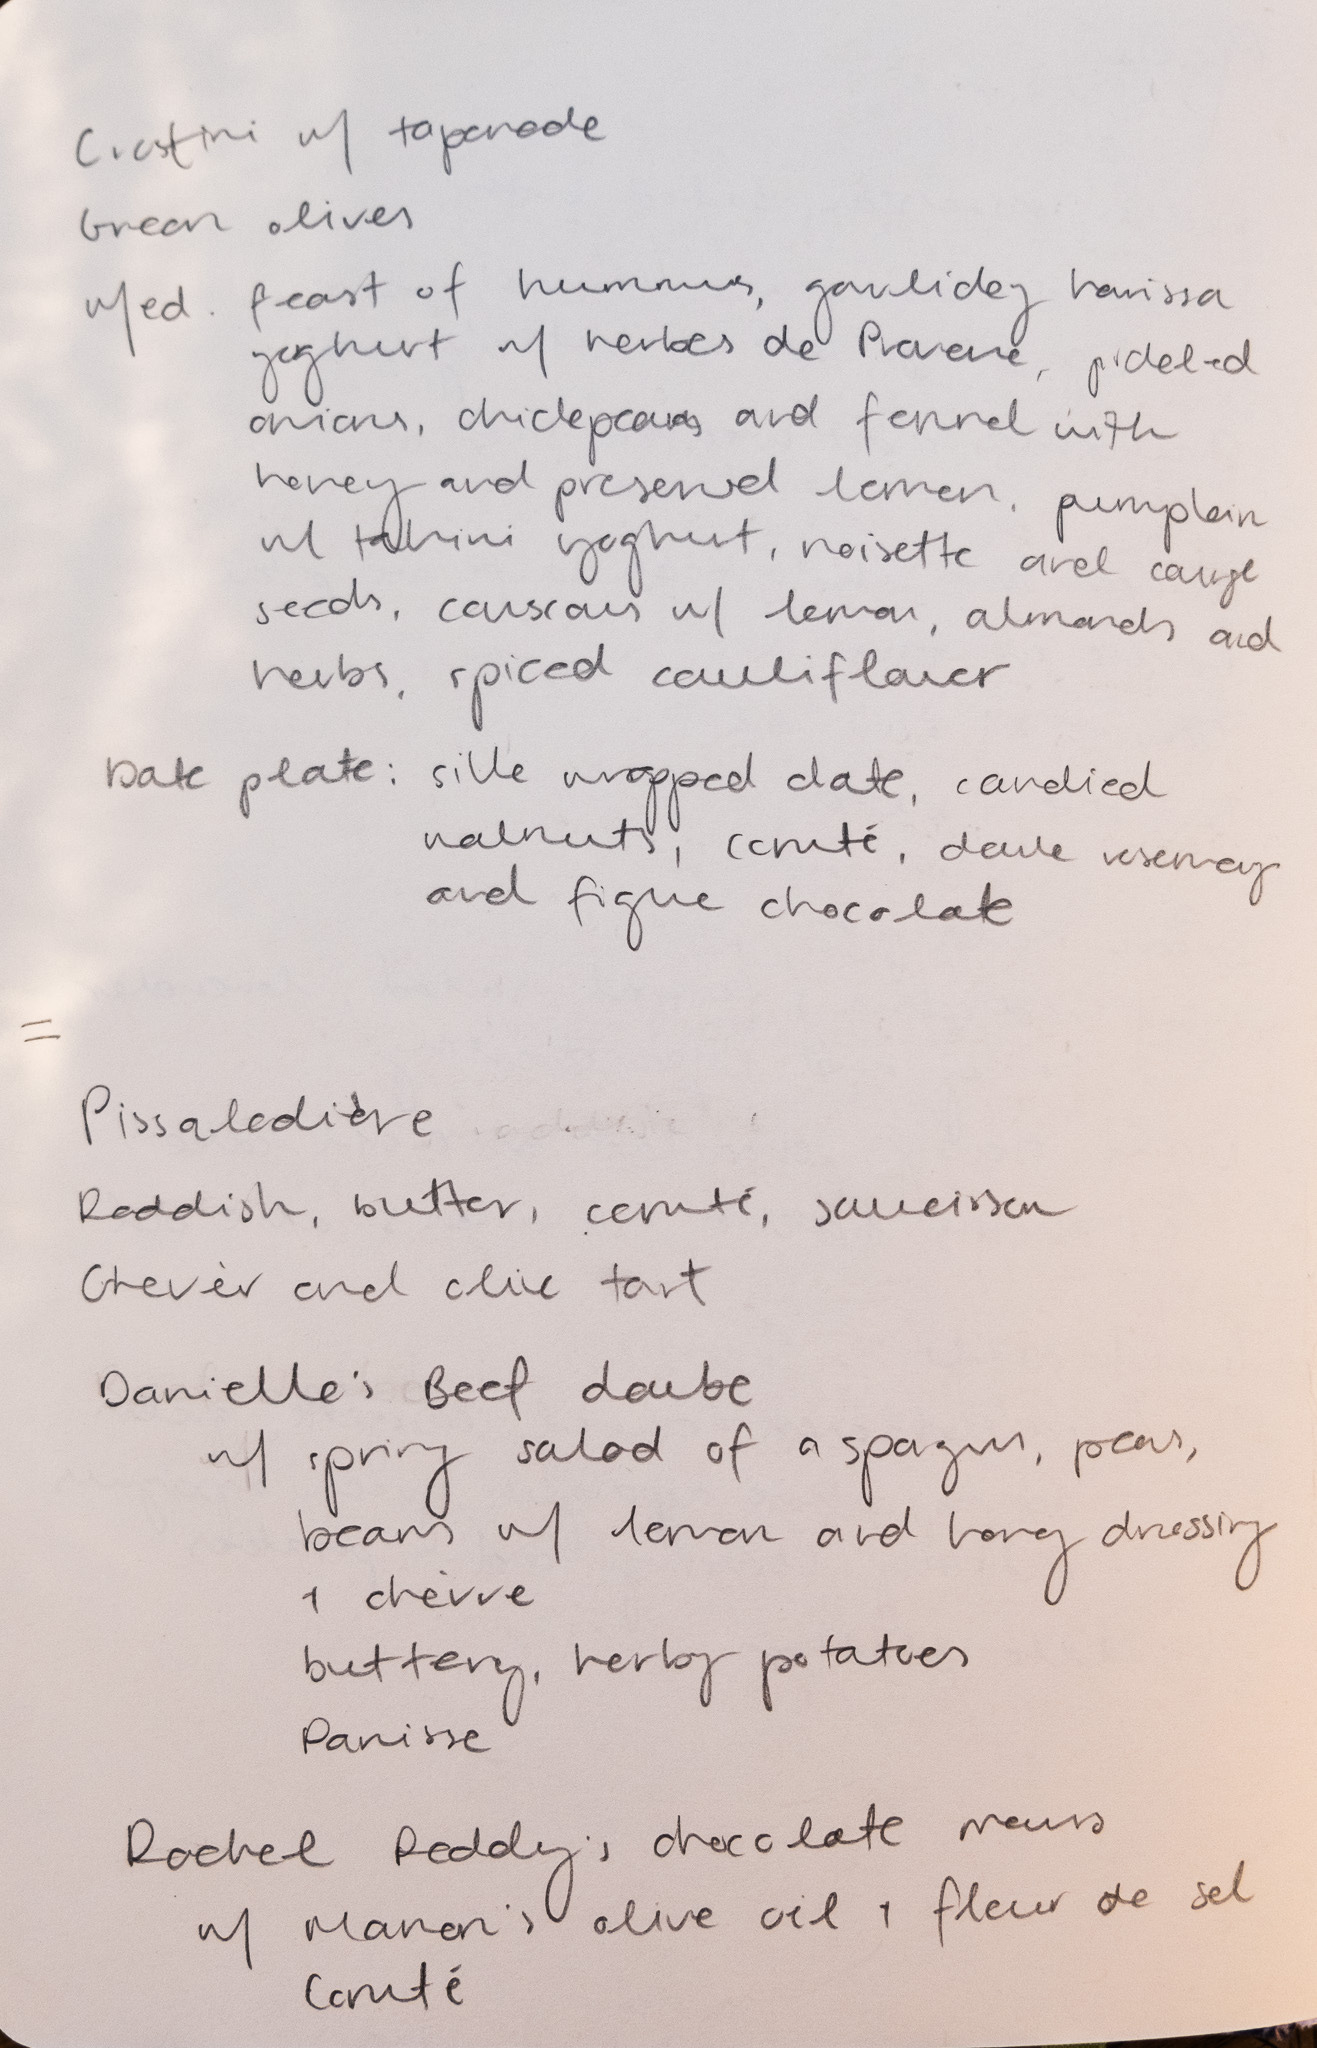 Crostini w/ tapenade
Green olives
Med. feast of hummus, garlicky harissa
yoghurt w/ herbes de Provence, pickled
onions, chickpeas and fennel with
honey and preserved lemon, pumpkin
w/ tahini yoghurt, noisette and courge
seeds, couscous w/ lemon, almonds and
herbs, spiced cauliflower
Date plate: silk wrapped date, candied
walnuts, comté, dark rosemary
and figue chocolate
=
Pissaladière
Raddish, butter, comté, saucisson
Chevèr and olive tart
Danielle's Beef daube
w/ spring salad of aspagus, peas,
beans w/ lemon and honey dressing
+ chèvre
buttery, herby potatoes
Panisse
Rachel Reddy's chocolate mouss
w/ Manon's olive oil + fleur de sel
Comté